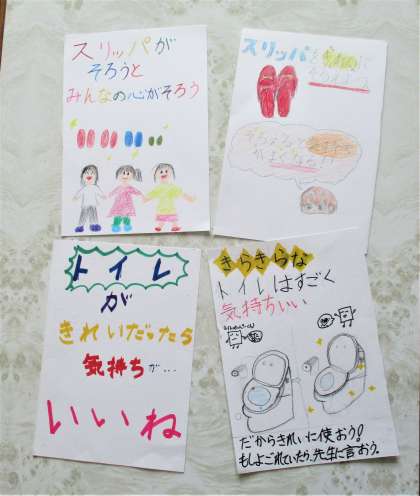 スリッパが
そろうと
みんなの心がそろう
スリッパを
トイレ
が
きれいだったら
気持ちが…
いいね
きらきらな
トイレはすごく
気持ちいい
だからきれいに使おう!
もしよごれていたら、先生に言おう。